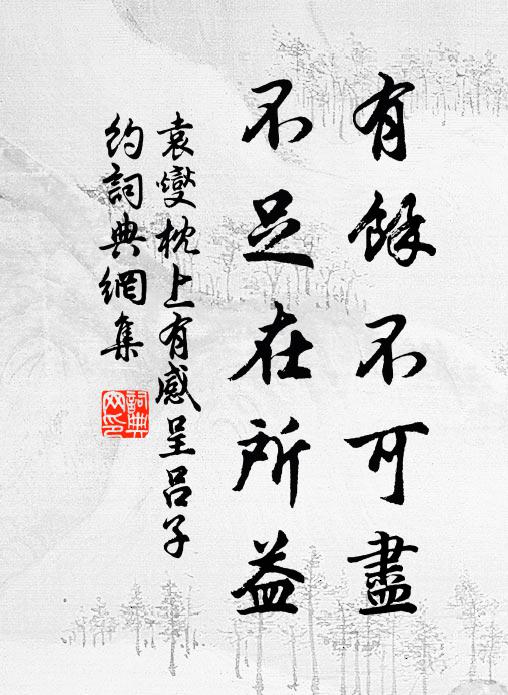 有餘不可盡
不足在所益
袁燮枕上有感呈呂子
約詞典網集
詞典
網印